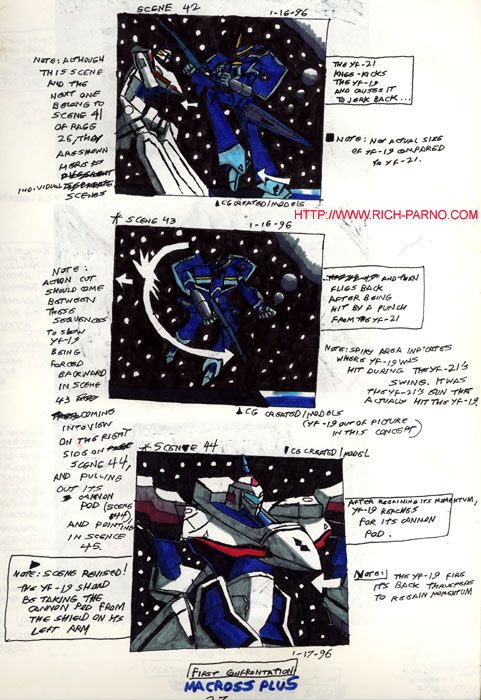 SCENE 42
1-16-96
NOTE: ALTHOUGH
THIS SCENE
AND THE
NEXT ONE
BELONG TO
SCENE 41
OF PAGE
26, THEY
ARE SHOWN
HERE AS
INDIVIDUAL
SCENES
THE YF-21
KNEE-KICKS
THE YF-19
AND CAUSES IT
TO JERK BACK...
NOTE: NOT ACTUAL SIZE
OF YF-19 COMPARED
TO YF-21.
CG CREATED/MODELS
HTTP://WWW.RICH-PARNO.COM
* SCENE 43
1-16-96
NOTE:
ACTION CUT
SHOULD COME
BETWEEN
THESE
SEQUENCES
TO SHOW
YF-19
BEING
FORCED
BACKWARD
IN SCENE
43
COMING
INTO VIEW
ON THE RIGHT
SIDE ON
SCENE 44,
AND PULLING
OUT ITS
CANNON
POD (SCENE
#44),
AND POINTING
IN SCENCE
45.
AND THEN
FLIES BACK
AFTER BEING
HIT BY A PUNCH
FROM THE YF-21
NOTE: SPIKY AREA INDICATES
WHERE YF-19 WAS
HIT DURING THE YF-21'S
SWING. IT WAS
THE YF-21'S GUN THAT
ACTUALLY HIT THE YF-19.
CG CREATED/MODELS
(YF-19 OUT OF PICTURE
IN THIS CONCEPT)
* SCENE 44
CG CREATED/MODEL
AFTER REGAINING ITS MOMENTUM,
YF-19 REACHES
FOR ITS CANNON
POD.
NOTE: SCENE REVISED!
THE YF-19 SHOULD
BE TAKING THE
CANNON POD FROM
THE SHIELD ON ITS
LEFT ARM
NOTE: THE YF-19 FIRE
ITS BACK THRUSTERS
TO REGAIN MOMENTUM
1-17-96
FIRST CONFRONTATION
MACROSS PLUS